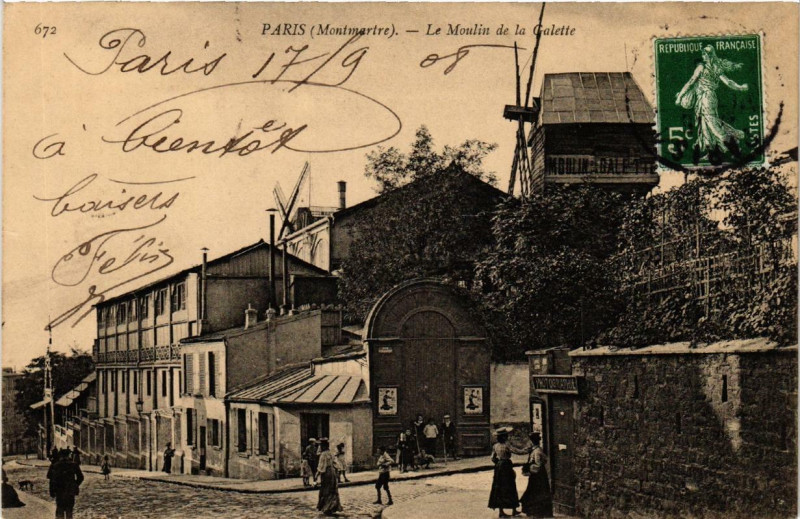 672
PARIS (Montmartre). — Le Moulin de la Galette
Paris 17/9 08
à bientôt
baisers
Félix
REPUBLIQUE FRANÇAISE
5c
POSTES
MOULIN DE LA GALETTE